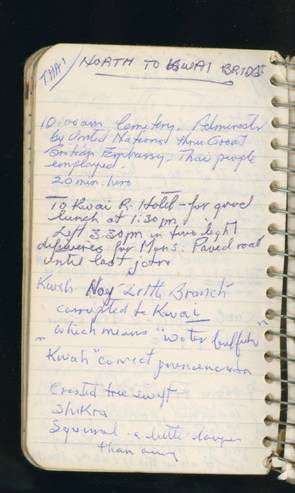 THAI
NORTH TO KWAI BRIDGE
10:00am Cemetery. Administ
by United Nations thru Great
British Embassy. Thai people
employed.
20 min. here
To Kwai R. Hotel - for good
lunch at 1:30pm
Left 3:30pm in two light
for Mans. Paved road
until last
Kwah Noy "Little Branch"
corrupted to Kwai
which means "water buffalo"
"Kwah" correct pronunciation
Crested tree swift
Shikra
Squirrel - a little larger
than